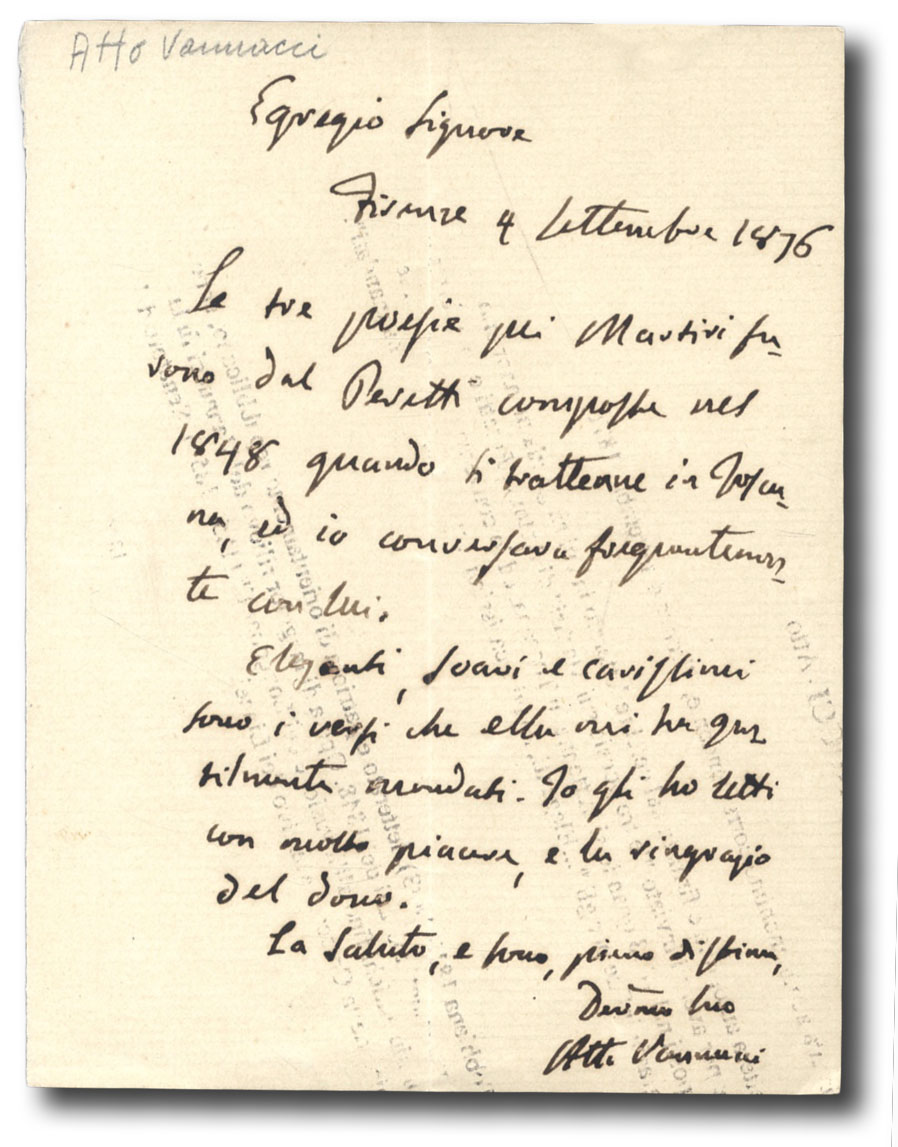 Atto Vannucci
Egregio Signore
Firenze 4 Settembre 1876
Le tre poesie pei Martiri fu-
rono dal Peretti composte nel
1848 quando si trattenne in Tosca-
na, ed io conversava frequentemen-
te con lui.
Eleganti, soavi e carissimi
sono i versi che ella mi ha gen-
tilmente mandati. Io gli ho letti
con molto piacere, e la ringrazio
del dono.
La saluto, e sono, pieno di stima,
Devmo suo
Atto Vannucci